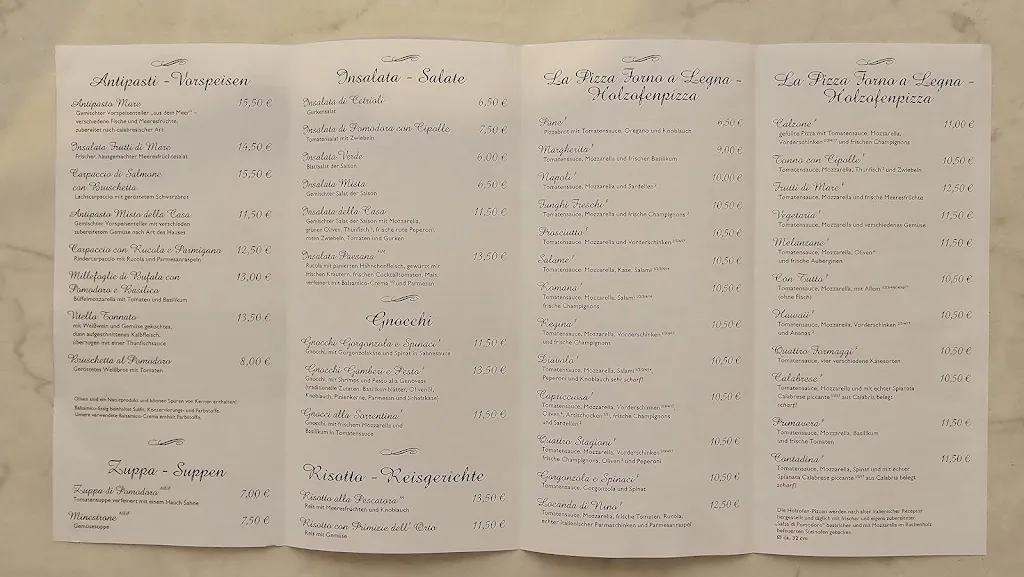 Antipasti - Vorspeisen
Antipasto Mare 15,50 €
Gemischter Vorspeisenteller „aus dem Meer“ –
verschiedene Fische und Meeresfrüchte,
zubereitet nach calabresischer Art
Insalata Frutti di Mare 14,50 €
Frischer, hausgemachter Meeresfrüchtesalat
Carpaccio di Salmone 15,50 €
con Bruschetta
Lachscarpaccio mit geröstetem Schwarzbrot
Antipasto Misto della Casa 11,50 €
Gemischter Vorspeisenteller mit verschieden
zubereitetem Gemüse nach Art des Hauses
Carpaccio con Rucola e Parmigano 12,50 €
Rindercarpaccio mit Rucola und Parmesanraspeln
Millefoglie di Bufala con 13,00 €
Pomodoro e Basilico
Büffelmozzarella mit Tomaten und Basilikum
Vitello Tonnato 13,50 €
mit Weißwein und Gemüse gekochtes,
dünn aufgeschnittenes Kalbfleisch,
überzogen mit einer Thunfischsauce
Bruschetta al Pomodoro 8,00 €
Geröstetes Weißbrot mit Tomaten
Oliven sind ein Naturprodukt und können Spuren von Kernen enthalten!
Balsamico-Essig beinhaltet Sulfit, Konservierungs- und Farbstoffe.
Unsere verwendete Balsamico-Creme enthält Farbstoffe.
Zuppa - Suppen
Zuppa di Pomodoro 7,00 €
Tomatensuppe verfeinert mit einem Hauch Sahne
Minestrone 7,50 €
Gemüsesuppe
Insalata - Salate
Insalata di Cetrioli 6,50 €
Gurkensalat
Insalata di Pomodoro con Cipolle 7,50 €
Tomatensalat mit Zwiebeln
Insalata Verde 6,00 €
Blattsalat der Saison
Insalata Mista 6,50 €
Gemischter Salat der Saison
Insalata della Casa 11,50 €
Gemischter Salat der Saison mit Mozzarella,
grünen Oliven, Thunfisch, frische rote Peperoni,
roten Zwiebeln, Tomaten und Gurken
Insalata Paesana 13,50 €
Rucola mit panierten Hähnchenfleisch, gewürzt mit
frischen Kräutern, frischen Cocktailtomaten, Mais,
verfeinert mit Balsamico-Creme und Parmesan
Gnocchi
Gnocchi Gorgonzola e Spinaci 11,50 €
Gnocchi, mit Gorgonzolakäse und Spinat in Sahnesauce
Gnocchi Gamberi e Pesto 13,50 €
Gnocchi, mit Shrimps und Pesto alla Genovese
(traditionelle Zutaten, Basilikumblätter, Olivenöl,
Knoblauch, Pinienkerne, Parmesan und Schafskäse)
Gnocci alla Sorrentina 11,50 €
Gnocchi, mit frischem Mozzarella und
Basilikum in Tomatensauce
Risotto - Reisgerichte
Risotto alla Pescatora 13,50 €
Reis mit Meeresfrüchten und Knoblauch
Risotto con Primizie dell' Orto 11,50 €
Reis mit Gemüse
La Pizza Forno a Legna -
Holzofenpizza
Pane 6,50 €
Pizzabrot mit Tomatensauce, Oregano und Knoblauch
Margherita 9,00 €
Tomatensauce, Mozzarella und frischer Basilikum
Napoli 10,00 €
Tomatensauce, Mozzarella und Sardellen
Funghi Freschi 10,50 €
Tomatensauce, Mozzarella und frische Champignons
Prosciutto 10,50 €
Tomatensauce, Mozzarella und Vorderschinken
Salame 10,50 €
Tomatensauce, Mozzarella, Käse, Salami
Romana 10,50 €
Tomatensauce, Mozzarella, Salami
frische Champignons
Regina 10,50 €
Tomatensauce, Mozzarella, Vorderschinken
und frische Champignons
Diavola 10,50 €
Tomatensauce, Mozzarella, Salami
Peperoni und Knoblauch sehr scharf!
Capricciosa 10,50 €
Tomatensauce, Mozzarella, Vorderschinken,
Oliven, Artischocken, frische Champignons
und Sardellen
Quattro Stagioni 10,50 €
Tomatensauce, Mozzarella, Vorderschinken
frische Champignons, Oliven und Peperoni
Gorgonzola e Spinaci 10,50 €
Tomatensauce, Gorgonzola und Spinat
Locanda di Nino 12,50 €
Tomatensauce, Mozzarella, frische Tomaten, Rucola,
echter italienischer Parmaschinken und Parmesanraspel
La Pizza Forno a Legna -
Holzofenpizza
Calzone 11,00 €
gefüllte Pizza mit Tomatensauce, Mozzarella,
Vorderschinken und frischen Champignons
Tonno con Cipolle 10,50 €
Tomatensauce, Mozzarella, Thunfisch und Zwiebeln
Frutti di Mare 12,50 €
Tomatensauce, Mozzarella und frische Meeresfrüchte
Vegetaria 11,50 €
Tomatensauce, Mozzarella und verschiedenes Gemüse
Melanzane 11,50 €
Tomatensauce, Mozzarella, Oliven
und frische Auberginen
Con Tutto 10,50 €
Tomatensauce, Mozzarella, mit Allem
(ohne Fisch)
Hawaii 10,50 €
Tomatensauce, Mozzarella, Vorderschinken
und Ananas
Quattro Formaggi 10,50 €
Tomatensauce, vier verschiedene Käsesorten
Calabrese 10,50 €
Tomatensauce, Mozzarella und mit echter Spianata
Calabrese piccante aus Calabris belegt
scharf!
Primavera 11,50 €
Tomatensauce, Mozzarella, Basilikum
und frische Tomaten
Contadina 11,50 €
Tomatensauce, Mozzarella, Spinat und mit echter
Splanata Calabrese piccante aus Calabria belegt
scharf!
Die Holzofen-Pizzen werden nach alter italienischer Rezeptur
hergestellt und täglich mit frischer und eigens zubereiteter
„Salsa di Pomodoro“ bestrichen und mit Mozzarella im Buchenholz
befeuerten Steinofen gebacken.
Ø ca. 32 cm